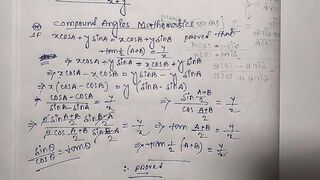 x+y
Compound Angles Mathematics
If xcosA + ysinA = xcosB + ysinB proved that
tan½(A+B) = y/x
⇒ xcosA + ysinA = xcosB + ysinB
⇒ xcosA - xcosB = ysinB - ysinA
⇒ x(cosA - cosB) = y(sinB - sinA)
⇒ cosA - cosB / sinB - sinA = y/x
⇒ 2sin A+B/2 sin B-A/2 / 2cos A+B/2 sin B-A/2 = y/x
sinθ/cosθ = tanθ
⇒ sin A+B/2 / cos A+B/2 = y/x
⇒ tan A+B/2 = y/x
⇒ tan ½ (A+B) = y/x
∴ proved